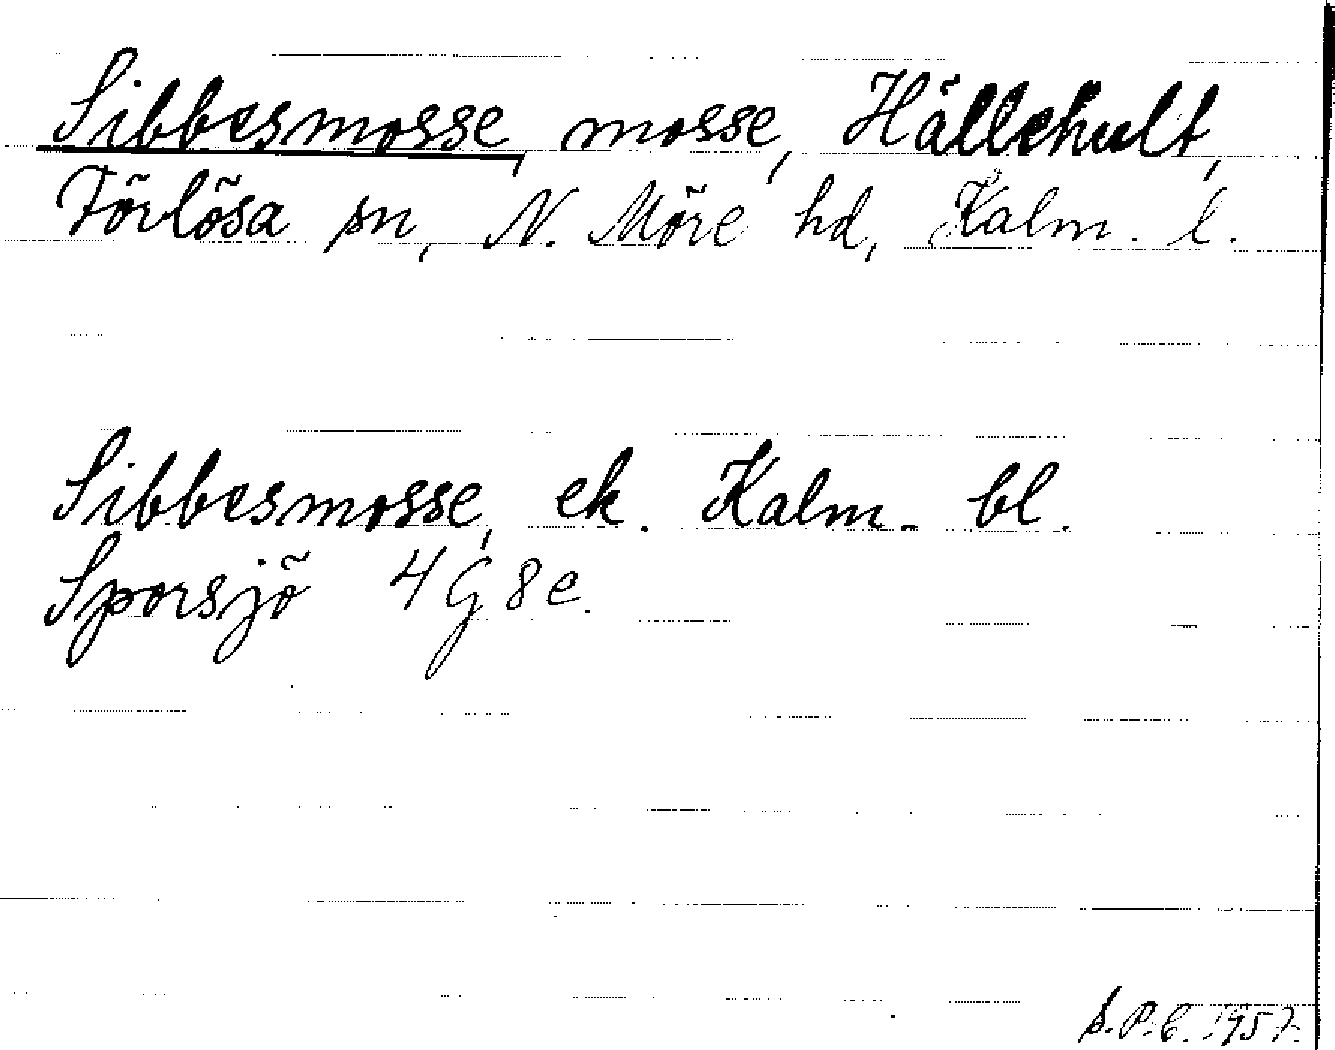 Sibbesmosse, mosse, Hällehult,
Förlösa sn, N. Möre hd, Kalm. l.
Sibbesmosse, ek. Kalm. bl.
Sporsjö 4G8e.
S.P.C. 1957.